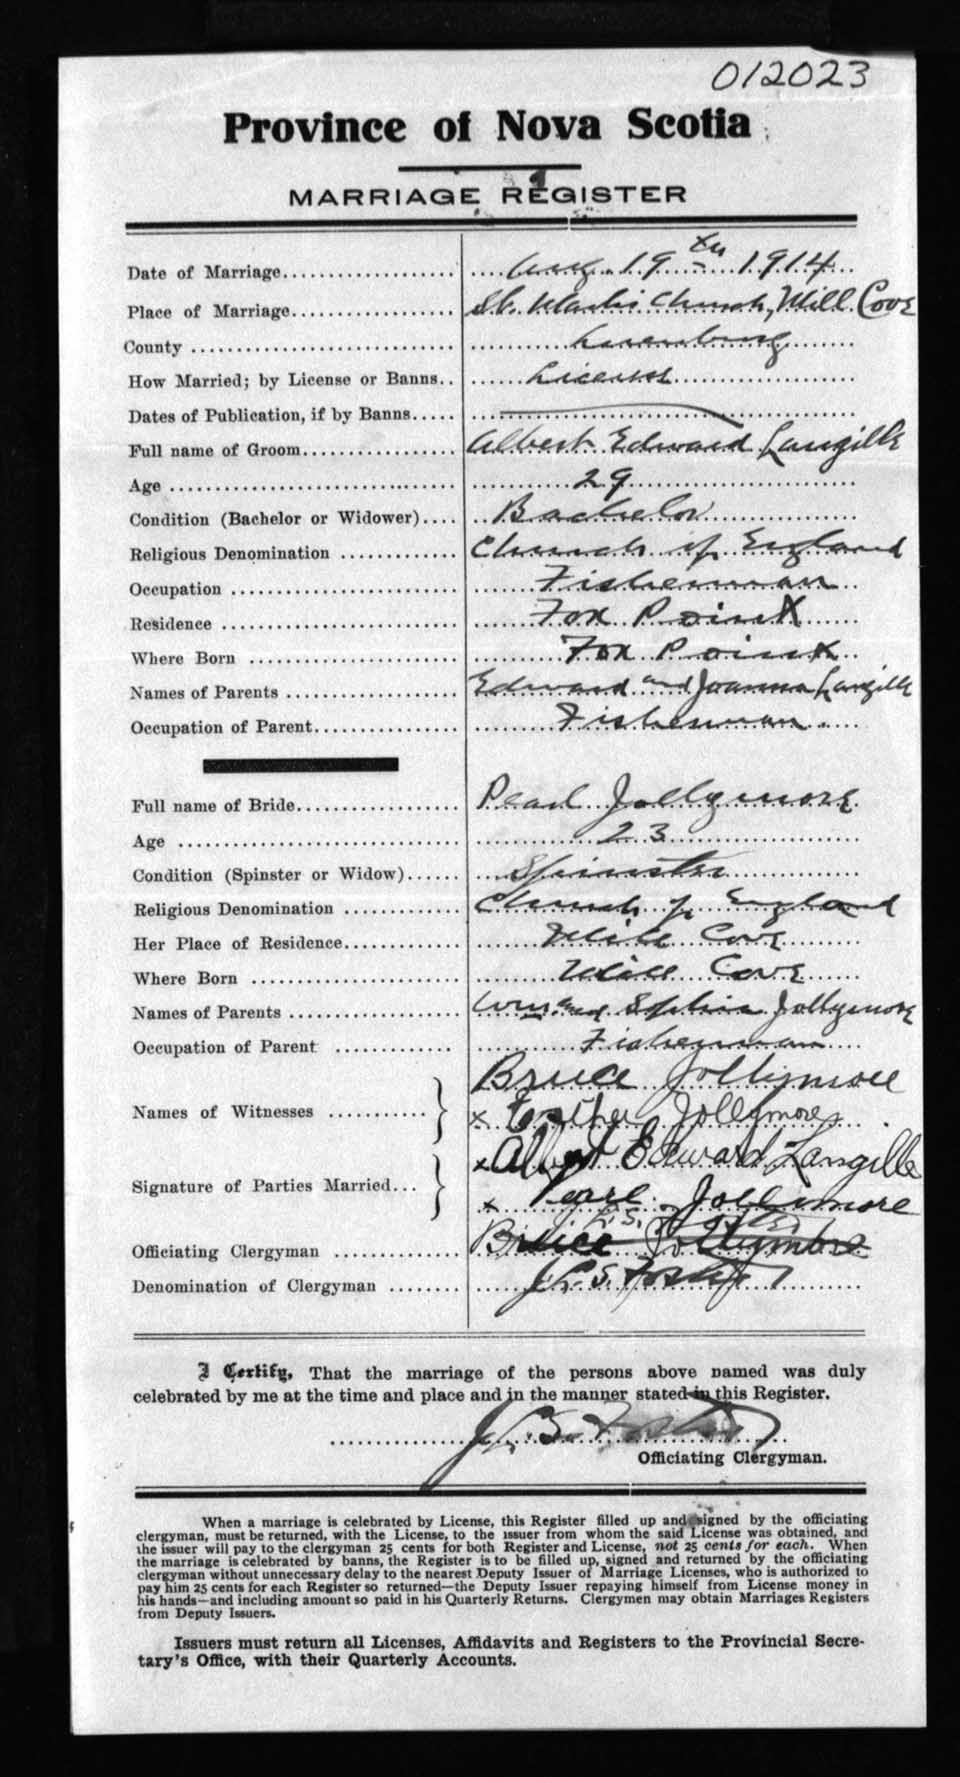 012023
Province of Nova Scotia
MARRIAGE REGISTER
Date of Marriage.................. Aug. 19th 1914
Place of Marriage................. St. Marks Church, Mill Cove
County ............................ Lunenburg
How Married; by License or Banns.. License
Dates of Publication, if by Banns.....
Full name of Groom................ Albert Edward Langille
Age .............................. 29
Condition (Bachelor or Widower).... Bachelor
Religious Denomination ............ Church of England
Occupation ........................ Fisherman
Residence ......................... Fox Point
Where Born ........................ Fox Point
Names of Parents .................. Edward and Joanna Langille
Occupation of Parent............... Fisherman
Full name of Bride................. Pearl Jollymore
Age ............................... 23
Condition (Spinster or Widow)...... Spinster
Religious Denomination ............ Church of England
Her Place of Residence............. Mill Cove
Where Born ........................ Mill Cove
Names of Parents .................. Wm and Sophia Jollymore
Occupation of Parent .............. Fisherman
Bruce Jollymore
Names of Witnesses ........... } x Jollymore
x Albert Edward Langille
Signature of Parties Married... } x Pearl Jollimore
Officiating Clergyman ............. Bruce Jollymore
Denomination of Clergyman ........
I Certify, That the marriage of the persons above named was duly
celebrated by me at the time and place and in the manner stated in this Register.
Officiating Clergyman.
When a marriage is celebrated by License, this Register filled up and signed by the officiating
clergyman, must be returned, with the License, to the issuer from whom the said License was obtained, and
the issuer will pay to the clergyman 25 cents for both Register and License, not 25 cents for each. When
the marriage is celebrated by banns, the Register is to be filled up, signed and returned by the officiating
clergyman without unnecessary delay to the nearest Deputy Issuer of Marriage Licenses, who is authorized to
pay him 25 cents for each Register so returned—the Deputy Issuer repaying himself from License money in
his hands—and including amount so paid in his Quarterly Returns. Clergymen may obtain Marriages Registers
from Deputy Issuers.
Issuers must return all Licenses, Affidavits and Registers to the Provincial Secre-
tary's Office, with their Quarterly Accounts.